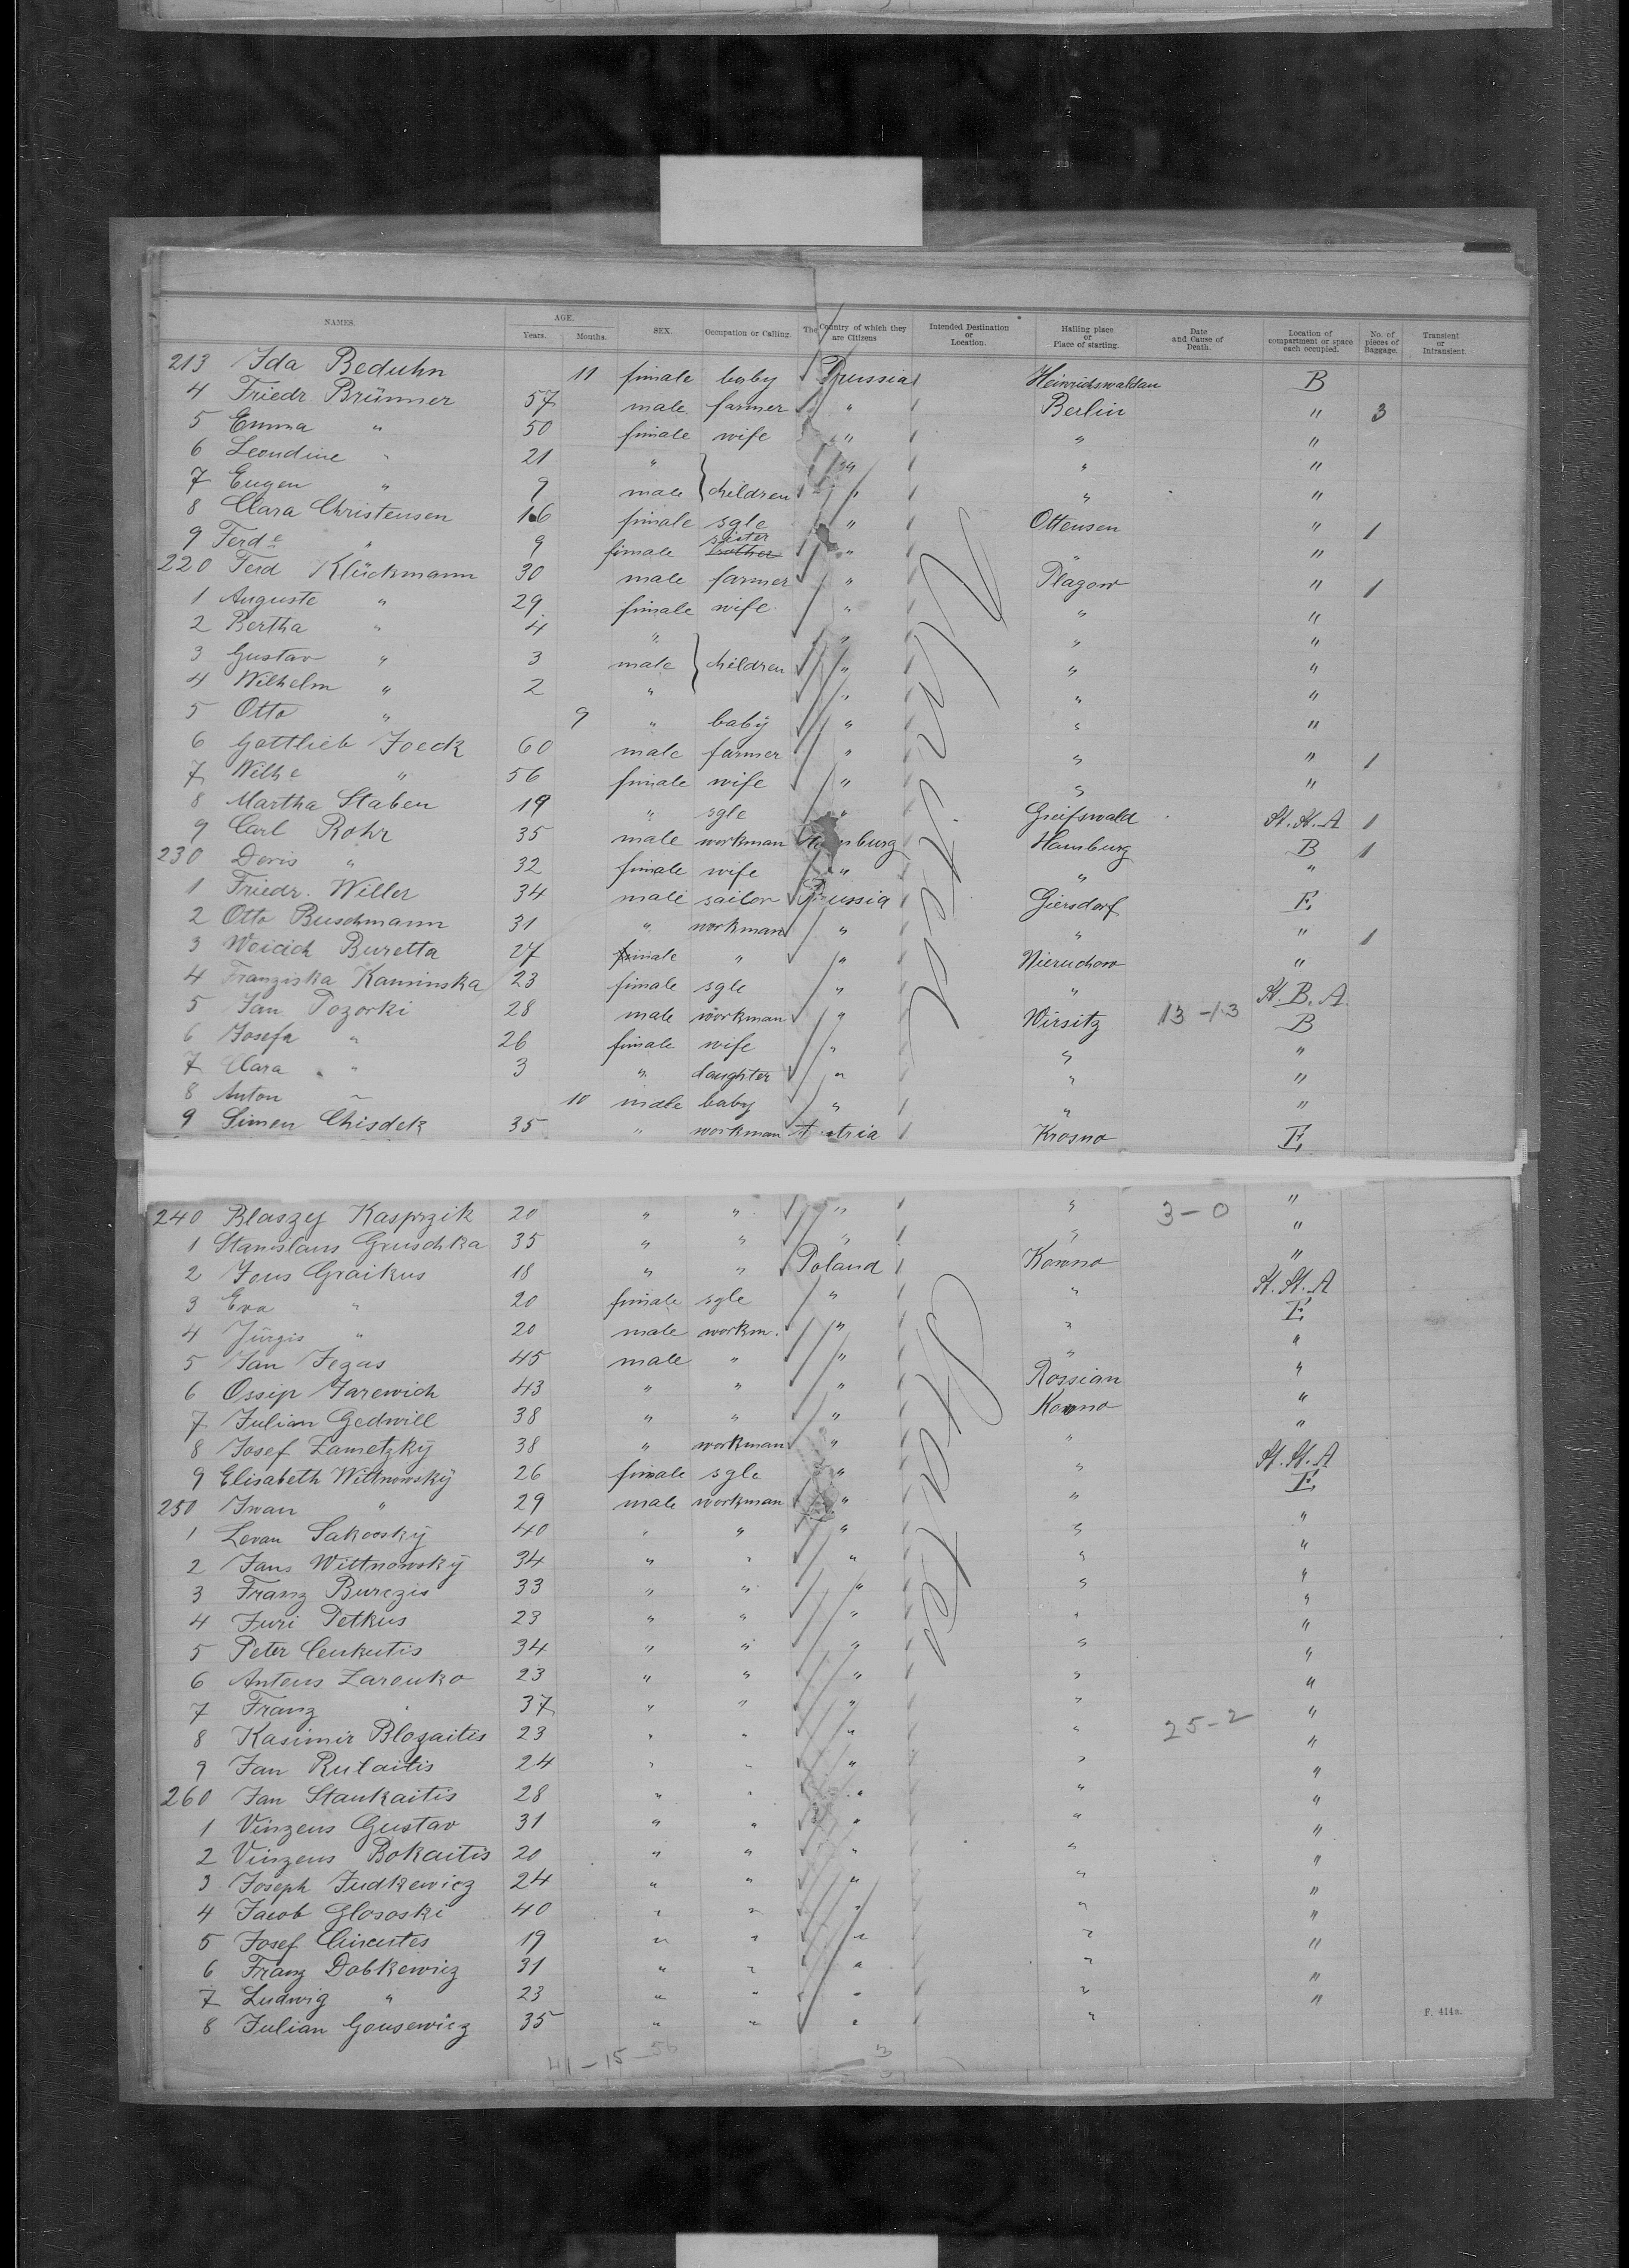 NAMES. AGE. Years. Months. SEX. Occupation or Calling. The Country of which they are Citizens Intended Destination or Location. Hailing place or Place of starting. Date and Cause of Death. Location of compartment or space each occupied. No. of pieces of Baggage. Transient or Intransient.
213 Ida Beduhn 11 female baby Prussia Heinrichswaldau B
4 Friedr. Brünner 57 male farmer " Berlin " 3
5 Emma " 50 female wife " " "
6 Leondine " 21 " " " "
7 Eugen " 9 male children " " "
8 Clara Christensen 16 female sgle " Ottensen " 1
9 Ferde " 9 female sister brother " " "
220 Ferd Klückmann 30 male farmer " Plagow " 1
1 Auguste " 29 female wife " " "
2 Bertha " 4 " " " "
3 Gustav " 3 male children " " "
4 Wilhelm " 2 " " " "
5 Otto " 9 " baby " " "
6 Gottlieb Joeck 60 male farmer " " " 1
7 Wilhe " 56 female wife " " "
8 Martha Staben 19 " sgle " Greifswald St. St. A 1
9 Carl Rohr 35 male workman Hamburg Hamburg B 1
230 Doris " 32 female wife " " "
1 Friedr. Willer 34 male sailor Prussia Giersdorf E
2 Otto Buschmann 31 " workman " " " 1
3 Buretta 27 male " " Nieruchow "
4 Franziska Kaminska 23 female sgle " " St. B. A.
5 Jan Pozorki 28 male workman " Wirsitz 13-13 B
6 Josefa " 26 female wife " " "
7 Clara " 3 " daughter " " "
8 Anton " 10 male baby " " "
9 Simen Chisdek 35 " workman Austria Krosno E
240 Blaszy Kasprzik 20 " " " " 3-0 "
1 Stanislaus Gruschka 35 " " " " "
2 Jous Graikus 18 " " Poland Kowno "
3 Eva " 20 female sgle " " St. St. A
4 Jürgis " 20 male workm. " " E
5 Jan Jegas 45 male " " " "
6 Ossip Jarewich 43 " " " Rossian "
7 Julian Gedwill 38 " " " Kowno "
8 Josef Zametzky 38 " workman " " "
9 Elisabeth Wittnowsky 26 female sgle " " St. St. A
250 Iwan " 29 male workman " " E
1 Levan Sakowsky 40 " " " " "
2 Jans Wittnowsky 34 " " " " "
3 Franz Buregis 33 " " " " "
4 Juri Petkus 23 " " " " "
5 Peter Ceukutis 34 " " " " "
6 Antous Zarenko 23 " " " " "
7 Franz " 37 " " " " "
8 Kasimir Blozaitis 23 " " " " 25-2 "
9 Jan Rulaitis 24 " " " " "
260 Jan Staukaitis 28 " " " " "
1 Vinzens Gustav 31 " " " " "
2 Vinzens Bokaitis 20 " " " " "
3 Joseph Judkewicz 24 " " " " "
4 Jacob Glososki 40 " " " " "
5 Josef 19 " " " " "
6 Franz Dobkewicz 31 " " " " "
7 Ludwig " 23 " " " " "
8 Julian Gousewicz 35 " " " "
F. 414a.
41-15-56 3